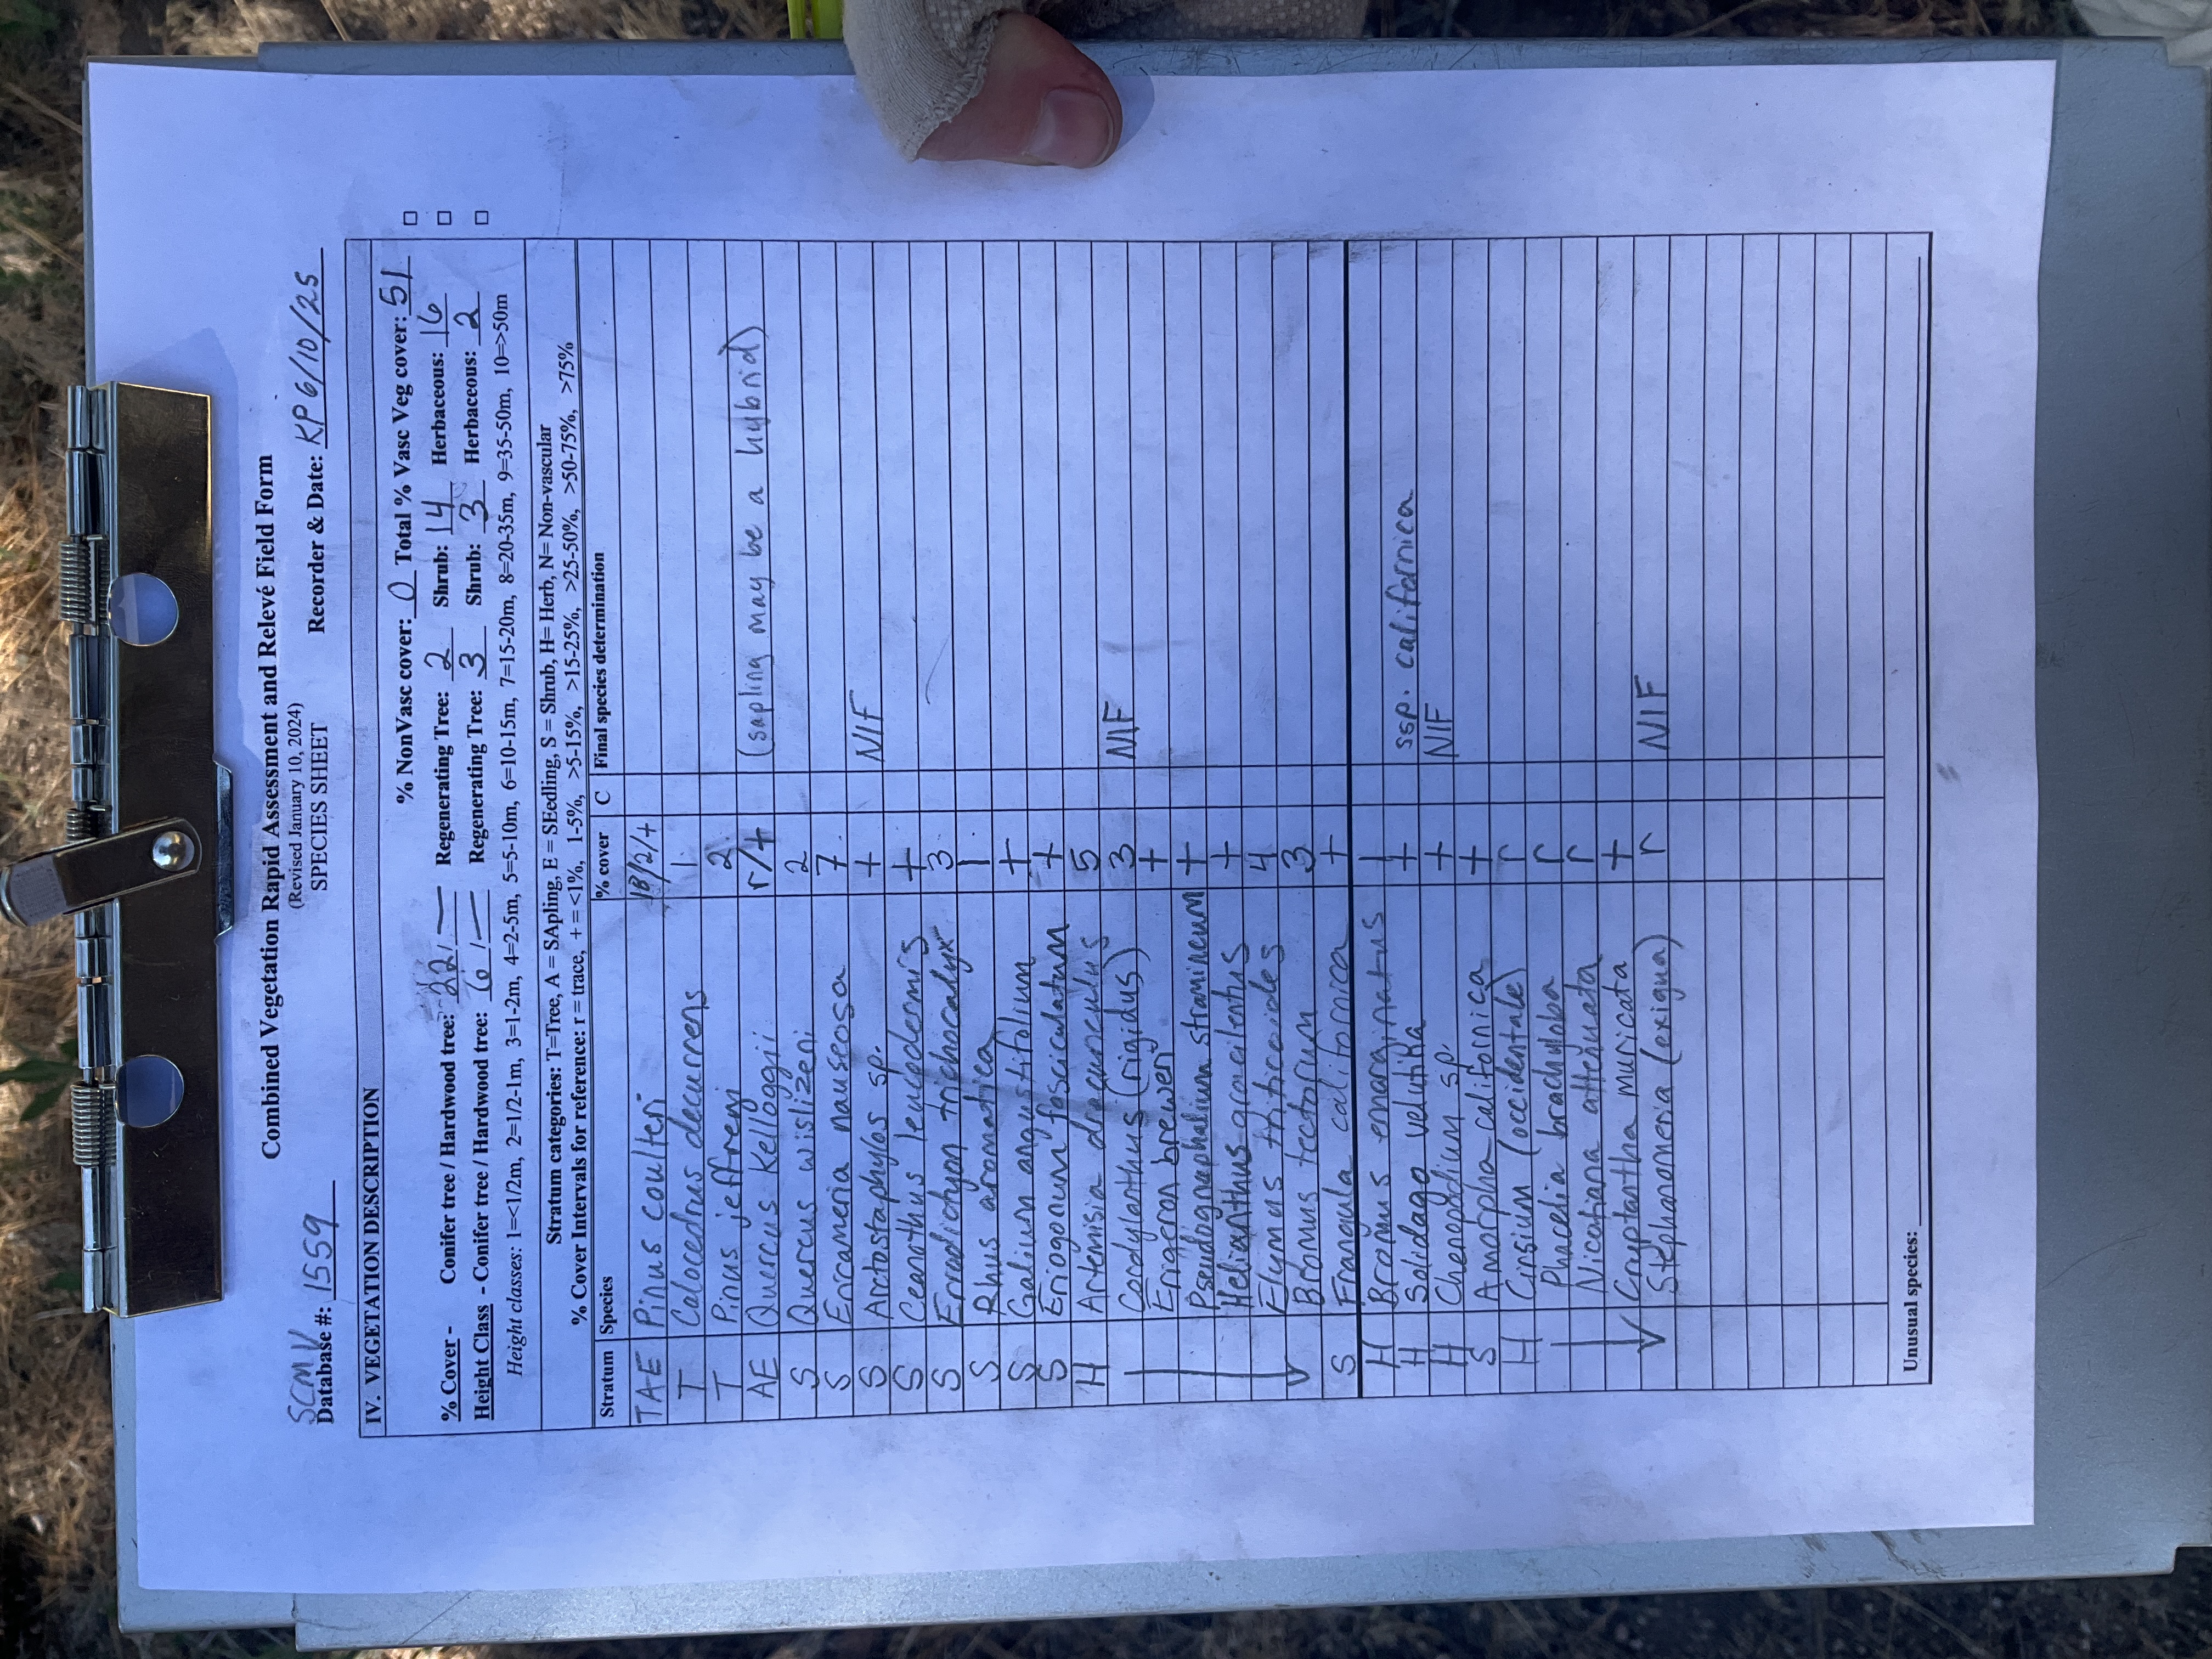 Combined Vegetation Rapid Assessment and Relevé Field Form
(Revised January 10, 2024)
SPECIES SHEET
SCMV
Database #: 1559 Recorder & Date: KP 6/10/25
IV. VEGETATION DESCRIPTION
% NonVasc cover: 0 Total % Vasc Veg cover: 51
% Cover - Conifer tree / Hardwood tree: 22 / — Regenerating Tree: 2 Shrub: 14 Herbaceous: 16
Height Class - Conifer tree / Hardwood tree: 6 / — Regenerating Tree: 3 Shrub: 3 Herbaceous: 2
Height classes: 1=<1/2m, 2=1/2-1m, 3=1-2m, 4=2-5m, 5=5-10m, 6=10-15m, 7=15-20m, 8=20-35m, 9=35-50m, 10=>50m
Stratum categories: T=Tree, A = SApling, E = SEedling, S = Shrub, H= Herb, N= Non-vascular
% Cover Intervals for reference: r = trace, + = <1%, 1-5%, >5-15%, >15-25%, >25-50%, >50-75%, >75%
Stratum Species % cover C Final species determination
TAE Pinus coulteri 18/2/+
T Calocedrus decurrens 1
T Pinus jeffreyi 2
AE Quercus kelloggii r/+ (sapling may be a hybrid)
S Quercus wislizeni 2
S Ericameria nauseosa 7
S Arctostaphylos sp. + NIF
S Ceanothus leucodermis +
S Eriodictyon trichocalyx 3
S Rhus aromatica 1
S Galium angustifolium +
S Eriogonum fasciculatum +
H Artemisia dracunculus 5
Cordylanthus (rigidus) 3 NIF
Erigeron breweri +
Pseudognaphalium stramineum +
Helianthus gracilentus +
Elymus triticoides 4
Bromus tectorum 3
S Frangula californica +
H Bromus emarginatus 1
H Solidago velutina + ssp. californica
H Chenopodium sp. + NIF
S Amorpha californica +
H Cirsium (occidentale) r
Phacelia brachyloba r
Nicotiana attenuata r
Cryptantha muricata +
Stephanomeria (exigua) r NIF
Unusual species: